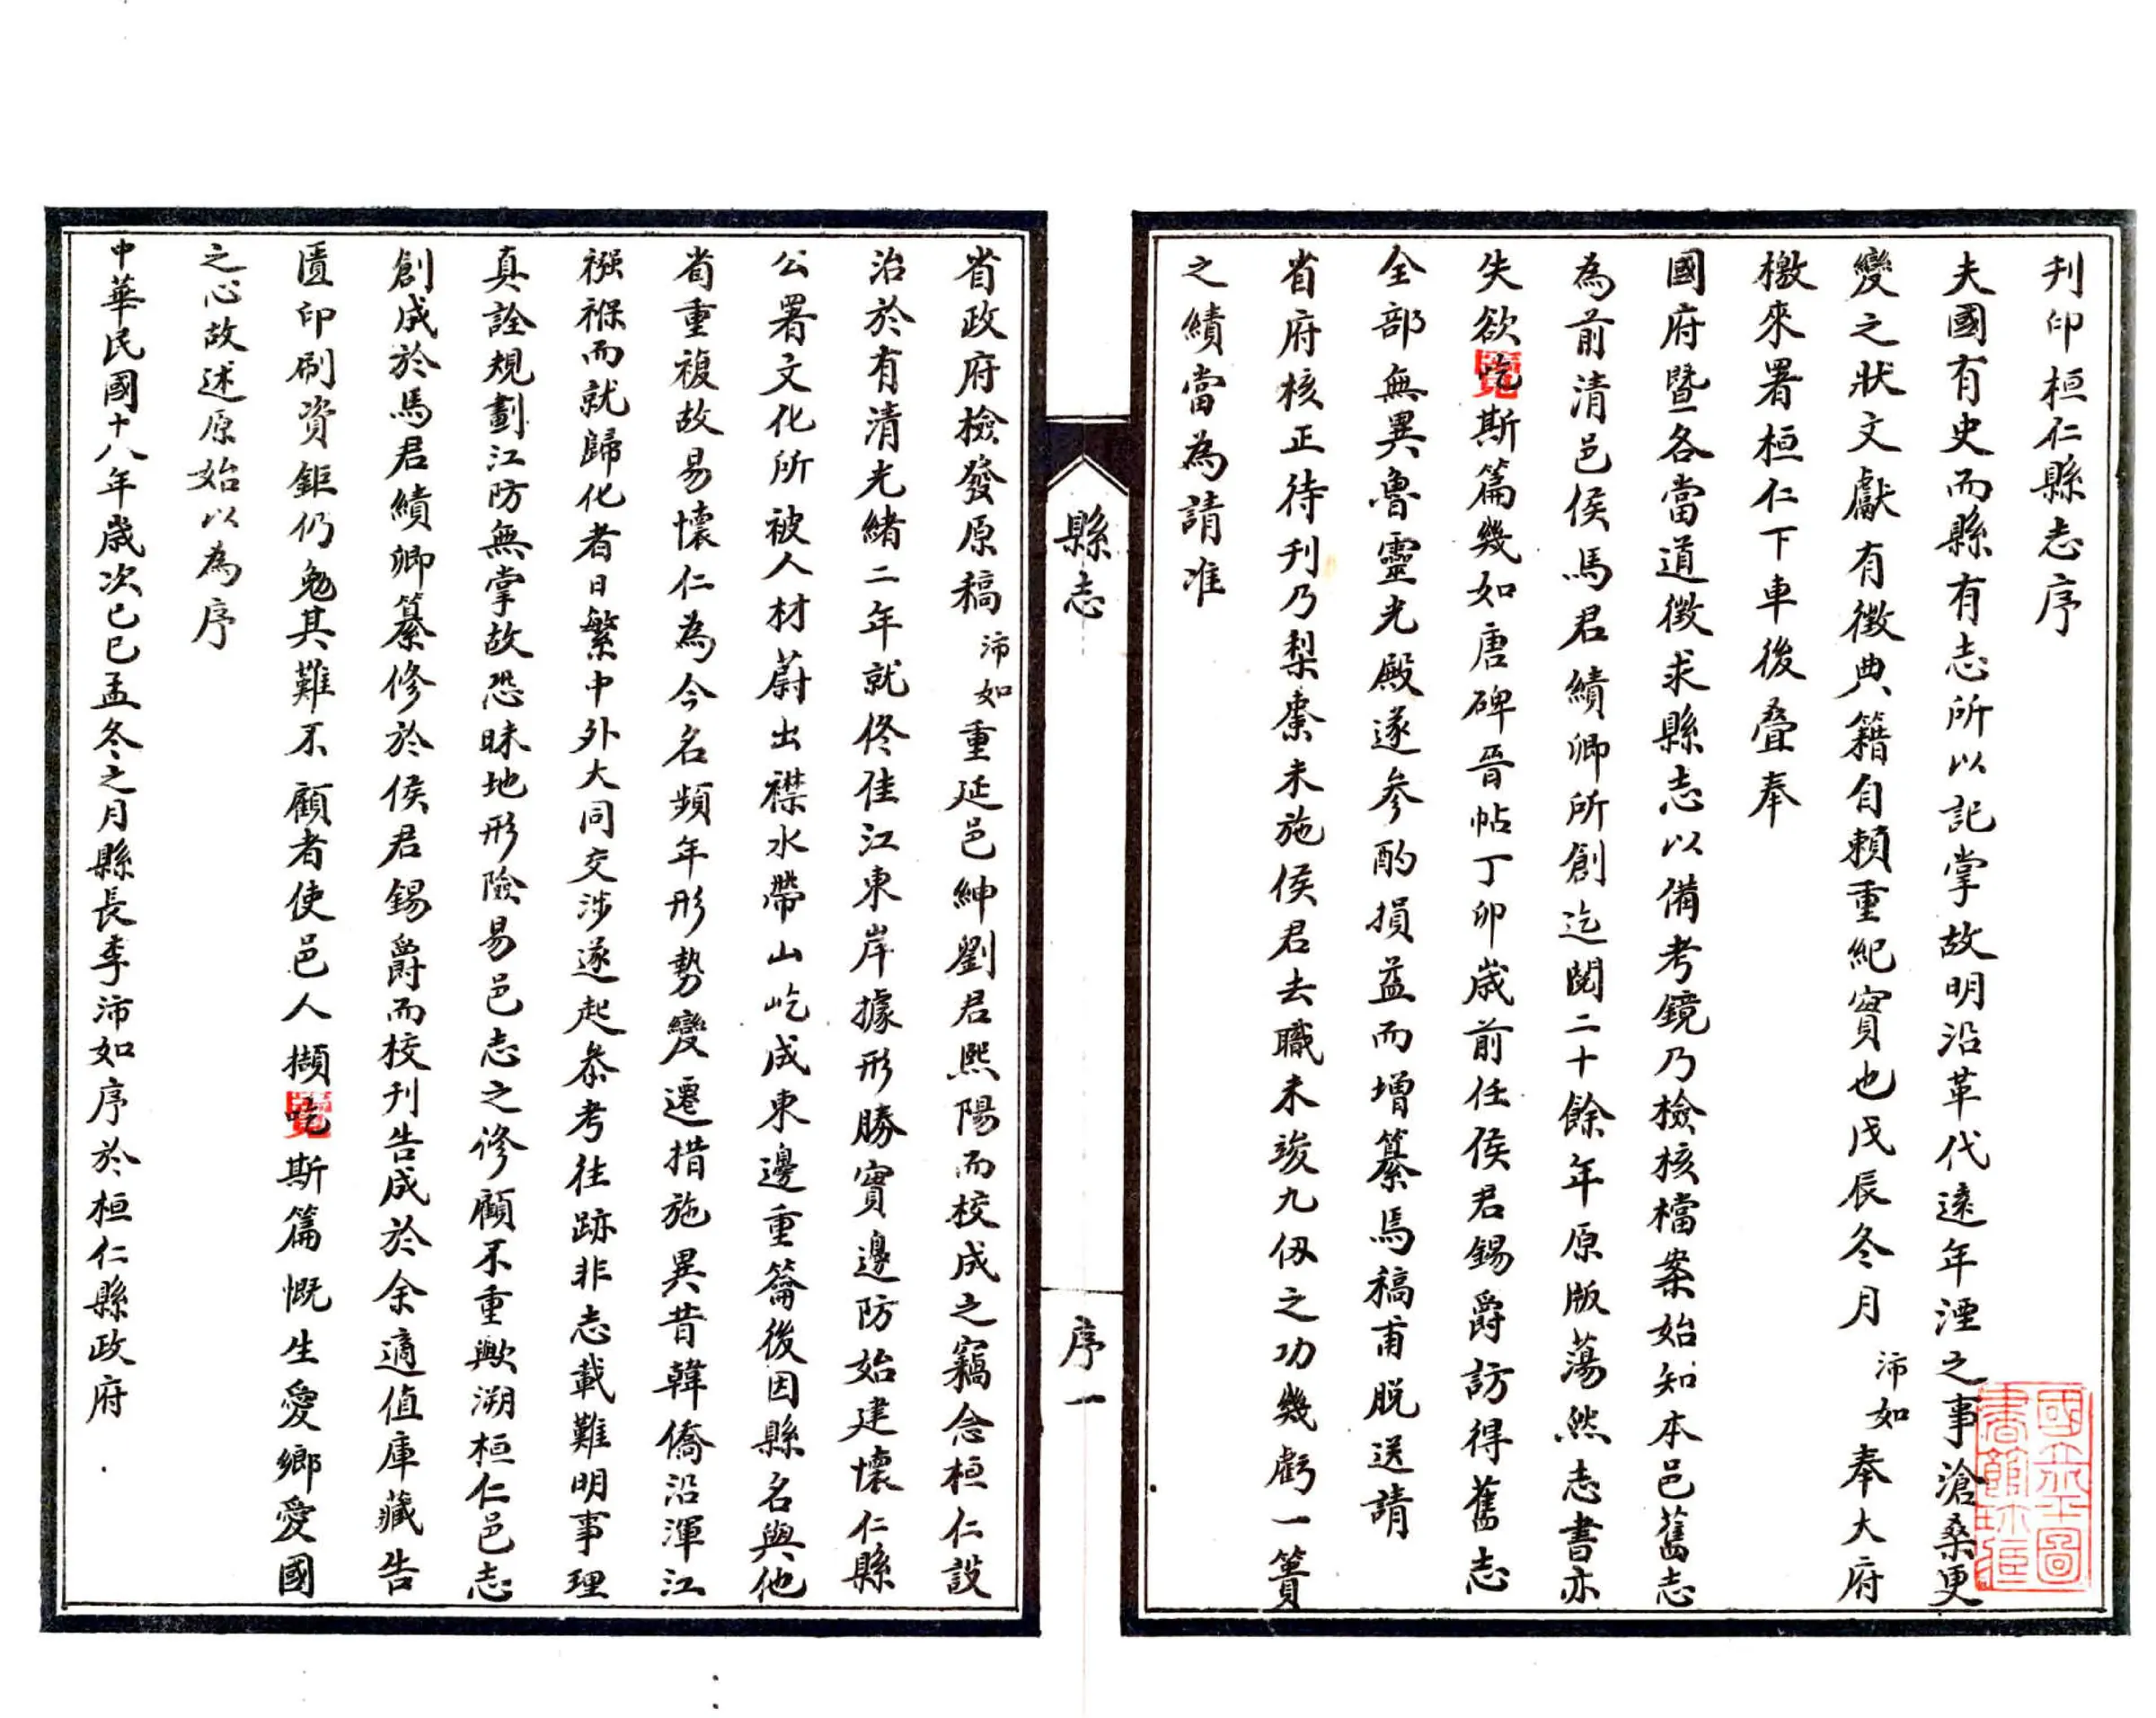 刋印桓仁縣志序
夫國有史而縣有志所以記掌故明沿革代遠年湮之事滄桑更
變之狀文獻有徵典籍自賴重紀實也戊辰冬月沛如奉大府
檄來署桓仁下車後叠奉
國府暨各當道徵求縣志以備考鏡乃檢核檔案始知本邑舊志
為前清邑侯馬君績卿所創迄閱二十餘年原版蕩然志書亦
失欲覽斯篇幾如唐碑晉帖丁卯歲前任侯君錫爵訪得舊志
全部無異魯靈光殿遂參酌損益而增纂馬稿甫脫送請
省府核正待刋乃梨棗未施侯君去職未竣九仭之功幾虧一簣
之績當為請准
縣志
序一
省政府檢發原稿沛如重延邑紳劉君熙陽而校成之竊念桓仁設
治於有清光緒二年就佟佳江東岸據形勝實邊防始建懷仁縣
公署文化所被人材蔚出襟水帶山屹成東邊重籥後因縣名與他
省重複故易懷仁為今名頻年形勢變遷措施異昔韓僑沿渾江
襁褓而就歸化者日繁中外大同交涉遂起叅考往跡非志載難明事理
真詮規劃江防無掌故恐昧地形險易邑志之修顧不重歟溯桓仁邑志
創成於馬君績卿纂修於侯君錫爵而校刋告成於余適值庫藏告
匱印刷資鉅仍勉其難不顧者使邑人擷覽斯篇慨生愛鄉愛國
之心故述原始以為序
中華民國十八年歲次己巳孟冬之月縣長李沛如序於桓仁縣政府